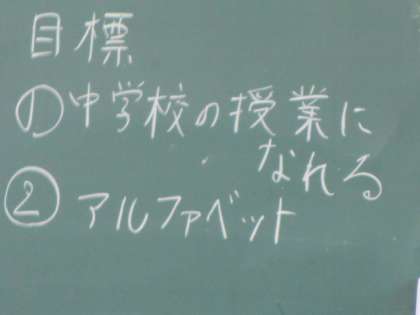 目標
①中学校の授業に
なれる
②アルファベット